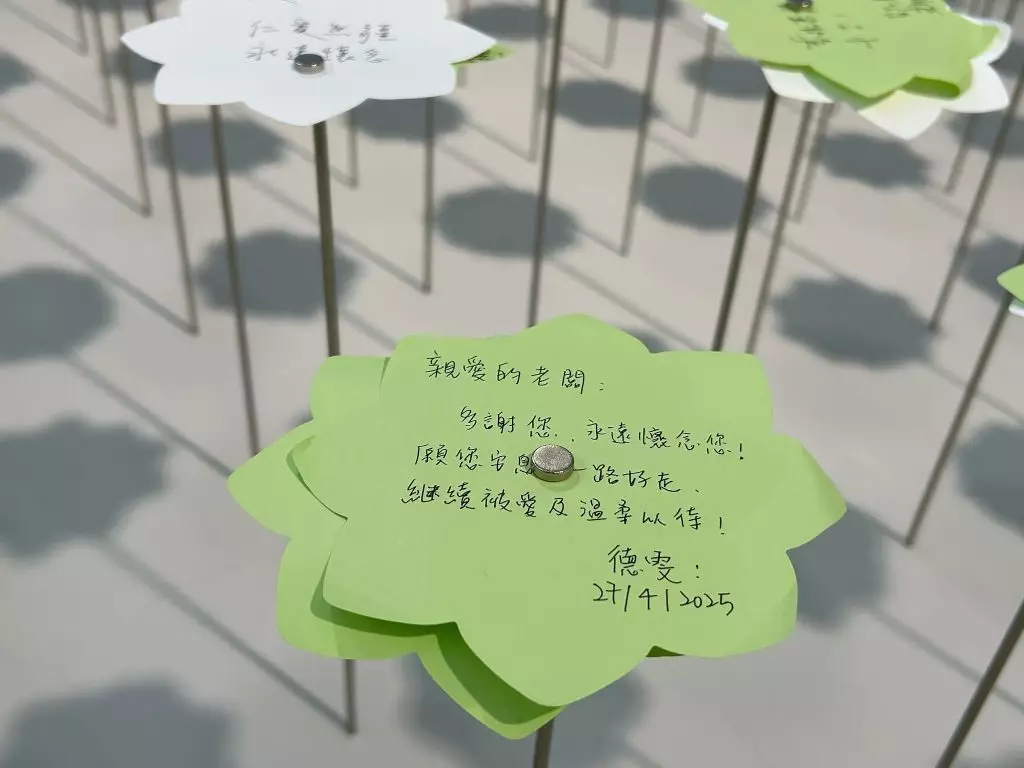 永遠懷念
親愛的老闆：
多謝您，永遠懷念您！
願您安息 一路好走，
繼續被愛及溫柔以待！
德雯：
27/4/2025